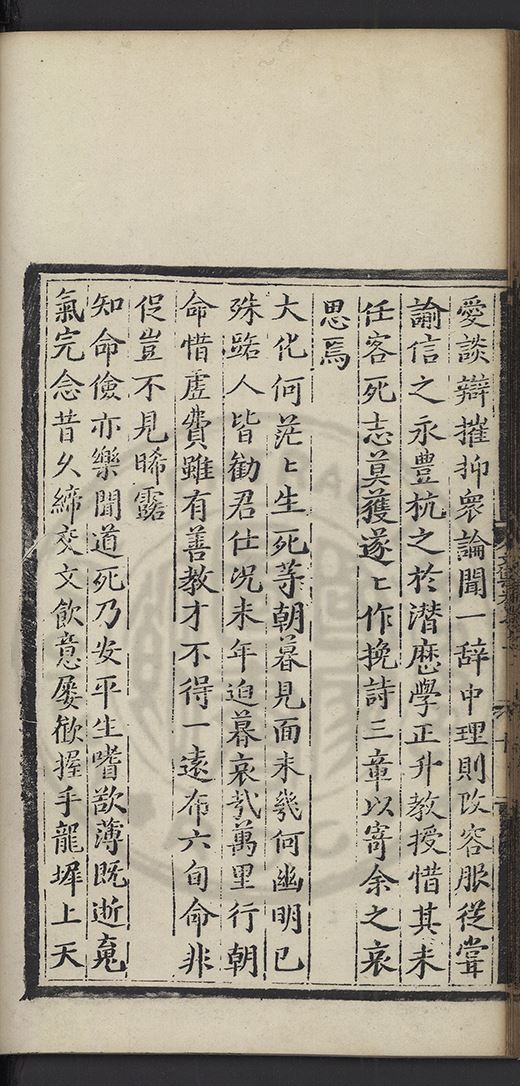 愛談辯摧抑衆論聞一辞中理則改容服從嘗
諭信之永豊杭之於潜歷學正升教授惜其未
任客死志莫獲遂〻作挽詩三章以寄余之哀
思焉
大化何茫〻生死等朝暮見面未幾何幽明已
殊路人皆勧君仕况未年迫暮哀哉萬里行朝
命惜虛費雖有善教才不得一遠布六旬命非
促豈不見晞露
知命儉亦樂聞道死乃安平生嗜欲薄既逝䰟
氣完念昔久締交文飲意屢歓握手龍墀上天